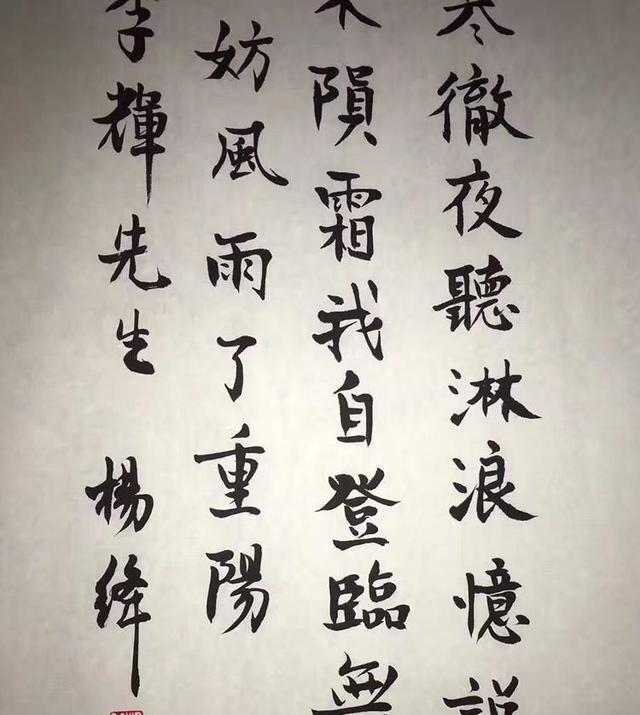 寒徹夜聽淋浪憶説
木隕霜我自登臨無
妨風雨了重陽
李輝先生 楊絳